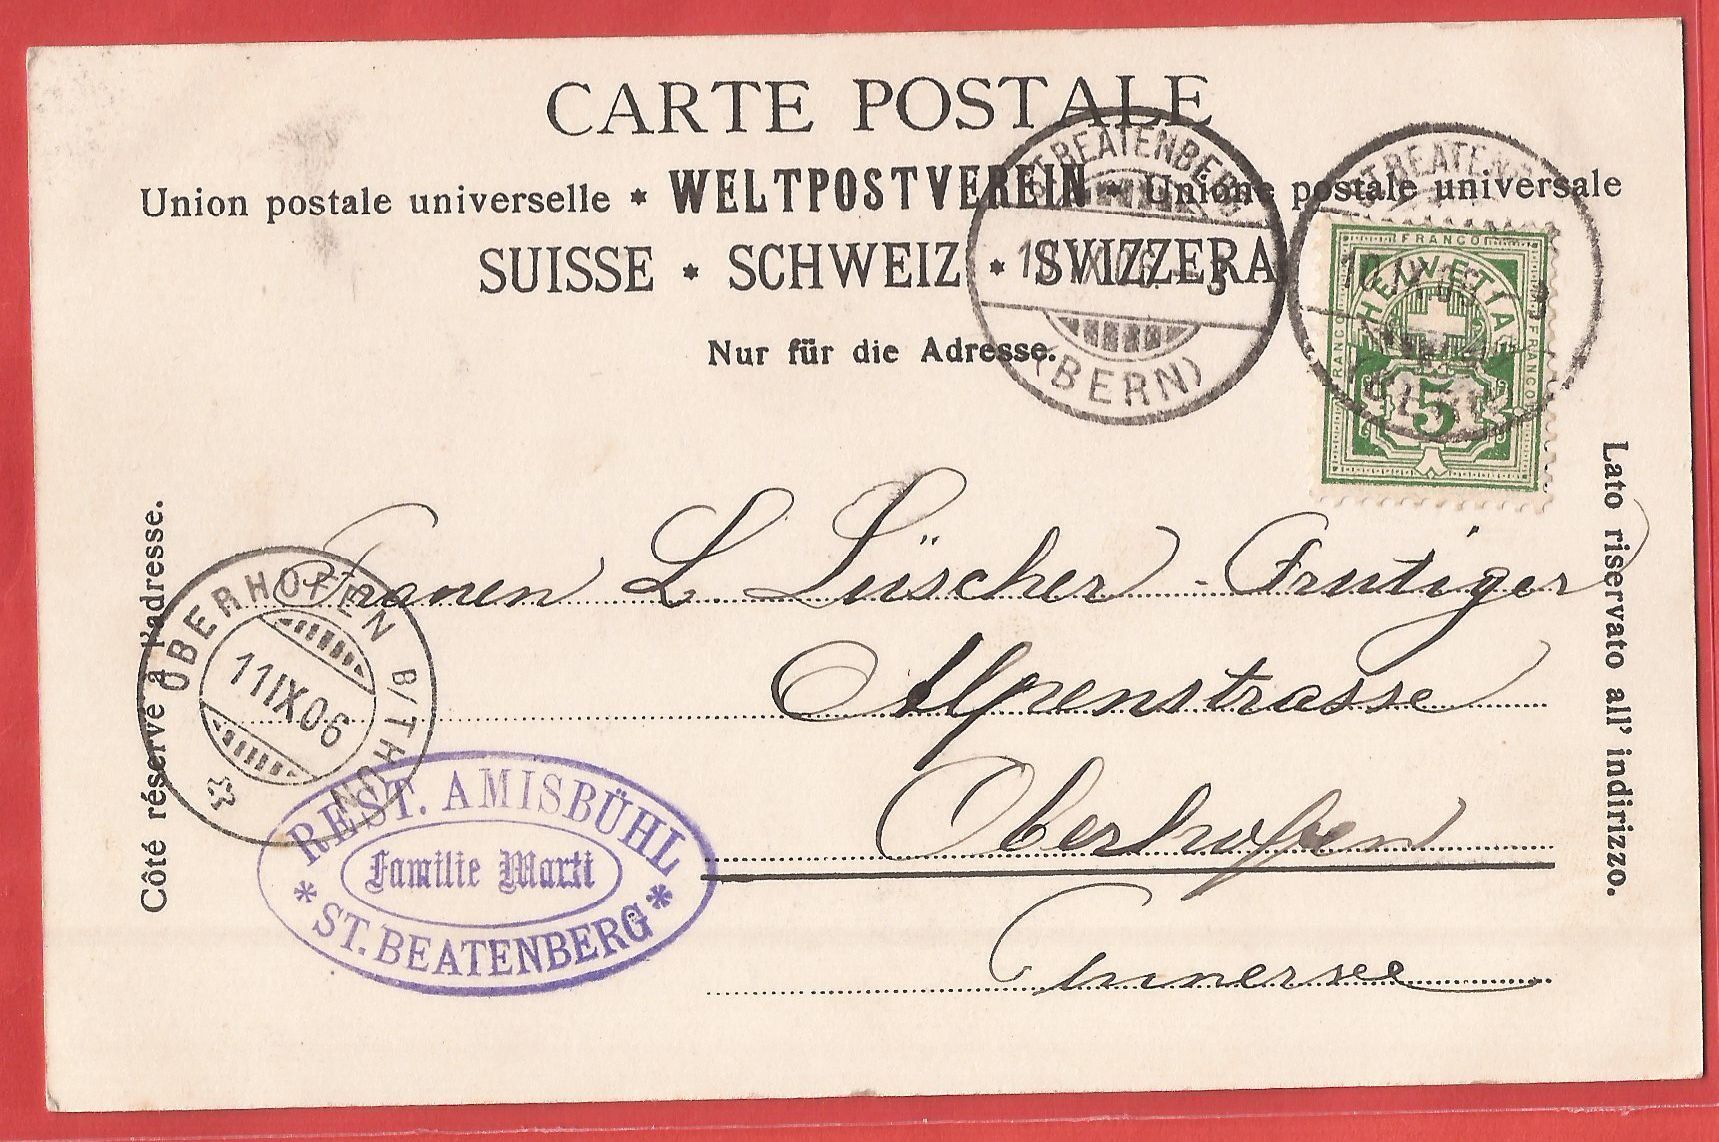 CARTE POSTALE
Union postale universelle * WELTPOSTVEREIN * Unione postale universale
SUISSE * SCHWEIZ * SVIZZERA
Nur für die Adresse.
ST. BEATENBERG
(BERN)
ST. BEATENBERG
10.IX.
FRANCO
FRANCO
FRANCO
HELVETIA
5
Côté réservé à l'adresse.
Lato riservato all' indirizzo.
L. Lüscher-Frutiger
Alpenstrasse
Oberhofen
OBERHOFEN B/THUN
11 IX 06
REST. AMISBÜHL
Familie Marti
* ST. BEATENBERG *